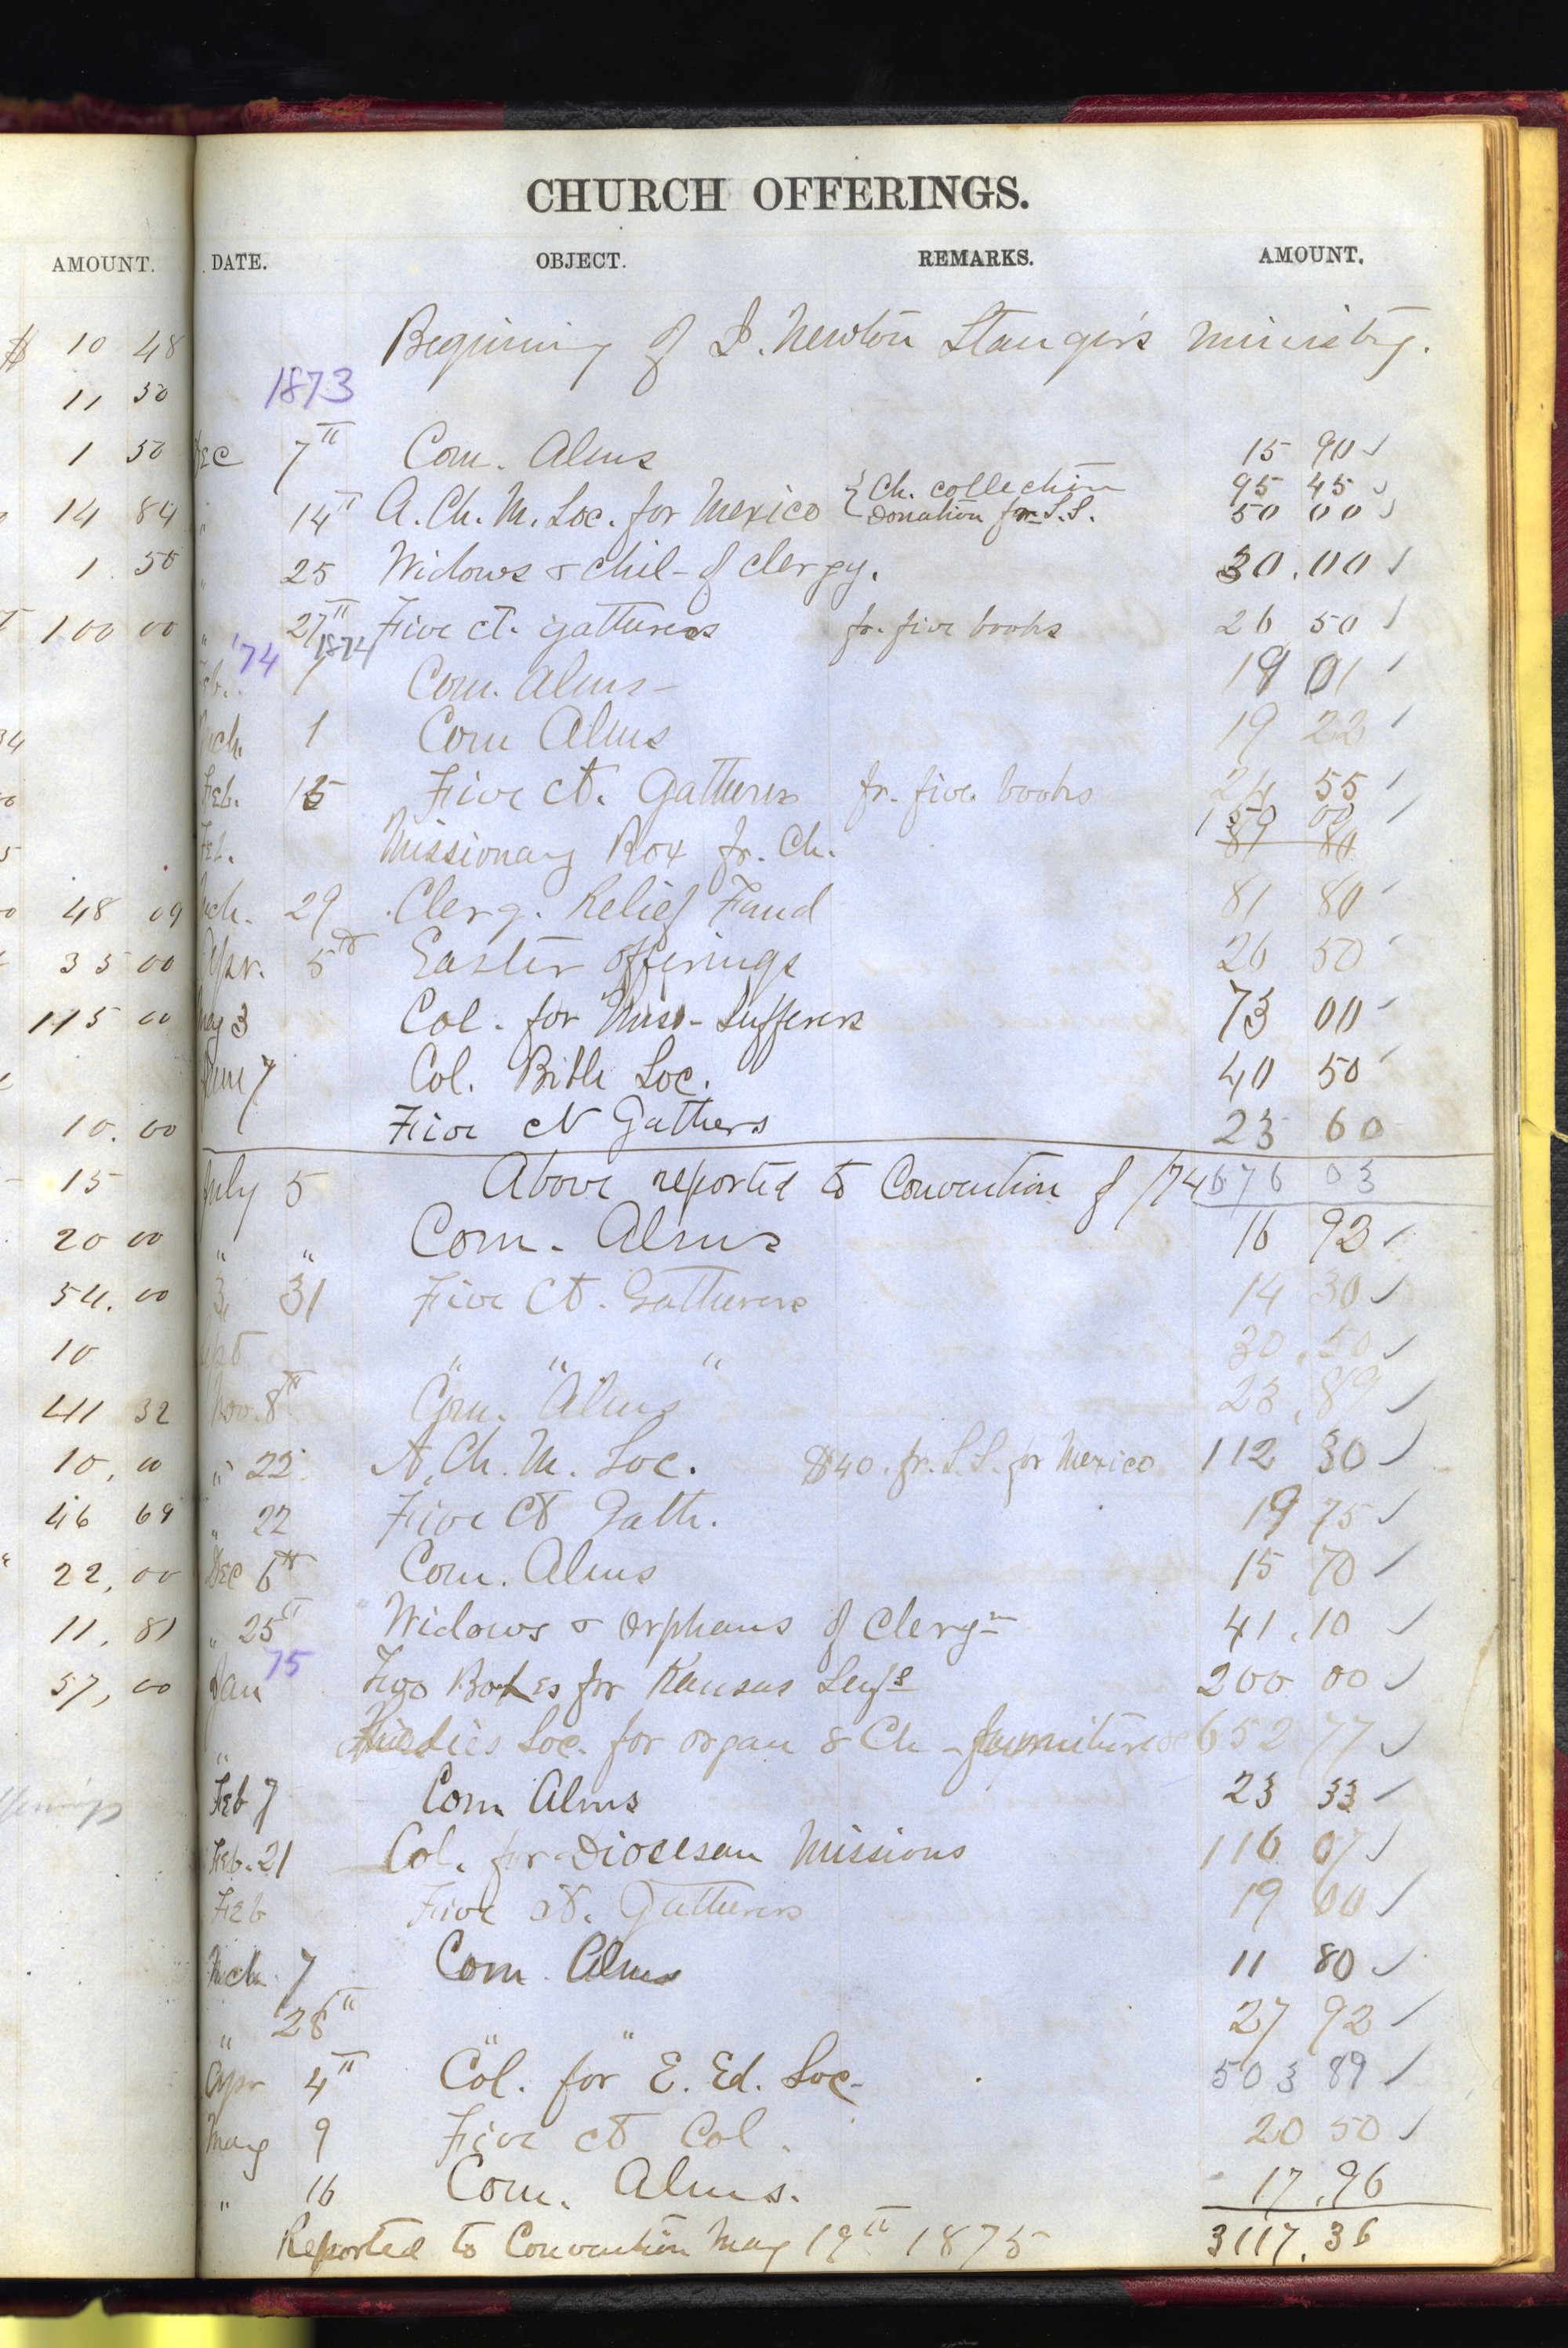 CHURCH OFFERINGS.
AMOUNT. DATE. OBJECT. REMARKS. AMOUNT.
$ 10 48
11 50
1 50
14 84
1 50
100 00
34
48 09
35 00
115 00
10. 00
15
20 00
54. 00
10
41 32
10, 00
46 69
22, 00
11, 81
57, 00
Beginning of I. Newton Stanger's ministry.
1873
Dec 7th Com. Alms 15 90 ✓
" 14th A. Ch. M. Soc. for Mexico { Ch. collection 95 45 ✓
Donation fr. S.S. 50 00 ✓
" 25 Widows & chil- of clergy. 30.00 ✓
" 27th Five ct. gatherers fr. five books 26 50 ✓
'74 1874
Feb. 1 Com. Alms- 19 01 ✓
Mch. 1 Com Alms 19 22 ✓
Feb. 15 Five ct. Gatherers fr. five books 24 55 ✓
Feb. Missionary Box fr. Ch. 150 00 ✓
Mch. 29 Clerg. Relief Fund 81 80 ✓
Apr. 5th Easter offerings 26 50 ✓
May 3 Col. for Miss- Sufferers 73 00 ✓
June 7 Col. Bible Soc. 40 50 ✓
Five ct Gathers 23 60
July 5 Above reported to Convention of /74 676 03
" " Com. Alms 16 92 ✓
31 Five ct. Gatherers 14 30 ✓
Sept " " " 30.50 ✓
Nov. 8th Com. Alms 23.89 ✓
" 22 A. Ch. M. Soc. $40. fr. S.S. for Mexico 112 30 ✓
" 22 Five ct Gath. 19 75 ✓
Dec 6th Com. Alms 15 70 ✓
" 25th Widows & orphans of clergn 41.10 ✓
75
Jan Two Boxes for Kansas Sufs 200 00 ✓
" Ladies Soc. for organ & Ch - furniture 652 77 ✓
Feb 7 Com Alms 23 33 ✓
Feb. 21 Col. for Diocesan Missions 116 07 ✓
Feb Five ct. Gatherers 19 00 ✓
Mch 7 Com. Alms 11 80 ✓
" 28th " " 27 92 ✓
Apr 4th Col. for E. Ed. Soc- 503 89 ✓
May 9 Five ct Col. 20 50 ✓
" 16 Com. Alms. 17.96
Reported to Convention May 19th 1875 3117.36